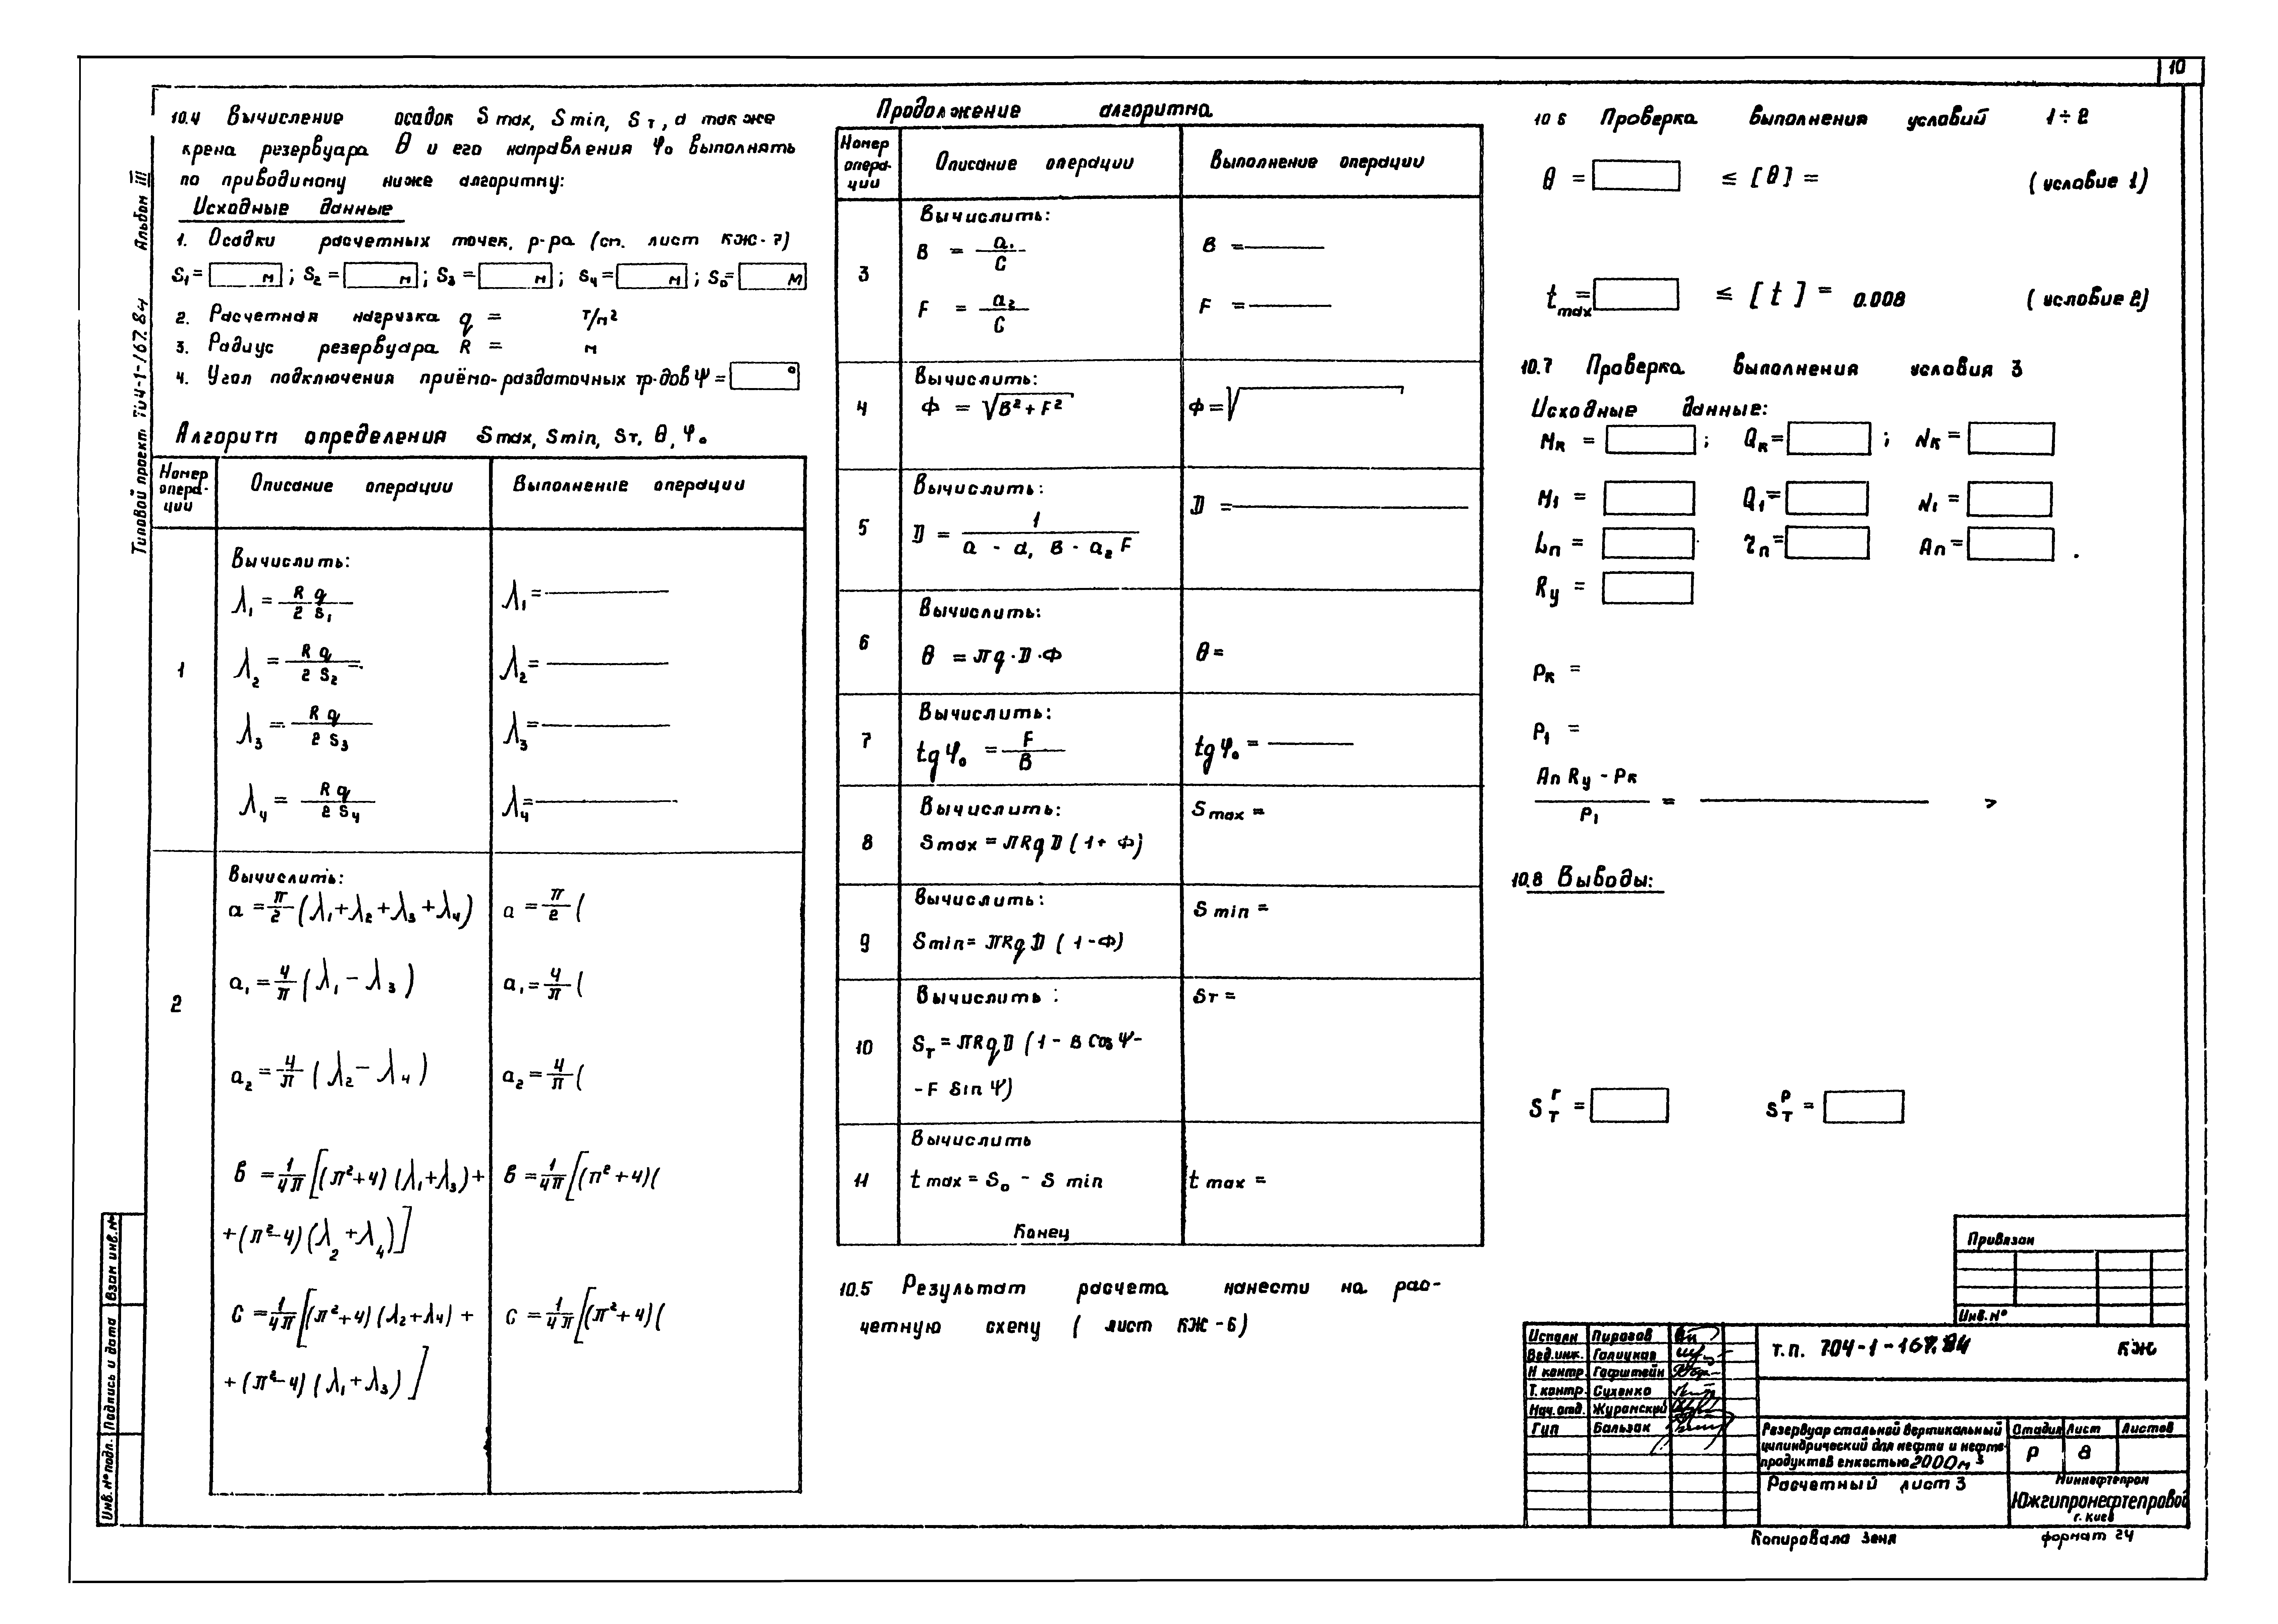 10
Типовой проект 704-1-167.84 Альбом III
10.4 Вычисление осадок Smax, Smin, Sт, а также
крена резервуара θ и его направления φ₀ выполнять
по приводимому ниже алгоритму:
Исходные данные
1. Осадки расчетных точек, р-ра (см. лист КЖ-7)
S₁ = м ; S₂ = м ; S₃ = м ; S₄ = м ; S₀ = м
2. Расчетная нагрузка q = т/м²
3. Радиус резервуара R = м
4. Угол подключения приёмо-раздаточных тр-дов Ψ = °
Алгоритм определения Smax, Smin, Sт, θ, φ₀
Номер опера-ции Описание операции Выполнение операции
1
Вычислить:
λ₁ = R q / 2 S₁ λ₁ =
λ₂ = R q / 2 S₂ λ₂ =
λ₃ = R q / 2 S₃ λ₃ =
λ₄ = R q / 2 S₄ λ₄ =
2
Вычислить:
a = π/2 (λ₁ + λ₂ + λ₃ + λ₄) a = π/2 (
a₁ = 4/π (λ₁ − λ₃) a₁ = 4/π (
a₂ = 4/π (λ₂ − λ₄) a₂ = 4/π (
в = 1/4π [(π² + 4) (λ₁ + λ₃) + в = 1/4π [(π² + 4) (
+ (π² − 4) (λ₂ + λ₄)]
c = 1/4π [(π² + 4) (λ₂ + λ₄) + c = 1/4π [(π² + 4) (
+ (π² − 4) (λ₁ + λ₃)]
Продолжение алгоритма
Номер опера-ции Описание операции Выполнение операции
3
Вычислить:
B = a₁ / C B =
F = a₂ / C F =
4
Вычислить:
Ф = √B² + F² Ф = √
5
Вычислить:
D = 1 / a - a₁ B - a₂ F D =
6
Вычислить:
θ = πq · D · Ф θ =
7
Вычислить:
tg φ₀ = F / B tg φ₀ =
8
Вычислить: S max =
Smax = πRq D (1 + Ф)
9
Вычислить: S min =
Smin = πRq D (1 - Ф)
10
Вычислить : Sт =
Sт = πRq D (1 - B Cos Ψ -
- F Sin Ψ)
11
Вычислить
t max = S₀ - S min t max =
Конец
10.5 Результат расчета нанести на рас-
четную схему ( лист КЖ-6)
10 6 Проверка выполнения условий 1÷2
θ = ≤ [θ] = ( условие 1)
t max = ≤ [t] = 0.008 ( условие 2)
10.7 Проверка выполнения условия 3
Исходные данные:
Mк = ; Qк = ; Nк =
M₁ = Q₁ = N₁ =
Lп = τп = Aп = .
Rу =
Pк =
P₁ =
Aп Rу - Pк / P₁ = >
10.8 Выводы:
Sтг = Sтр =
Привязан
Инв. №
Исполн Пирогов
Вед.инж. Галицкая
Н контр. Гафштейн
Т. контр. Сухенко
Нач. отд. Журамский
Гип Бальзак
Т.п. 704-1-167.84 КЖ
Резервуар стальной вертикальный
цилиндрический для нефти и нефте-
продуктов емкостью 2000 м³
Стадия Лист Листов
Р 8
Расчетный лист 3
Миннефтепром
Южгипронефтепровод
г. Киев
Копировала Зеня
формат 24
Инв. № подл. Подпись и дата Взам инв. №